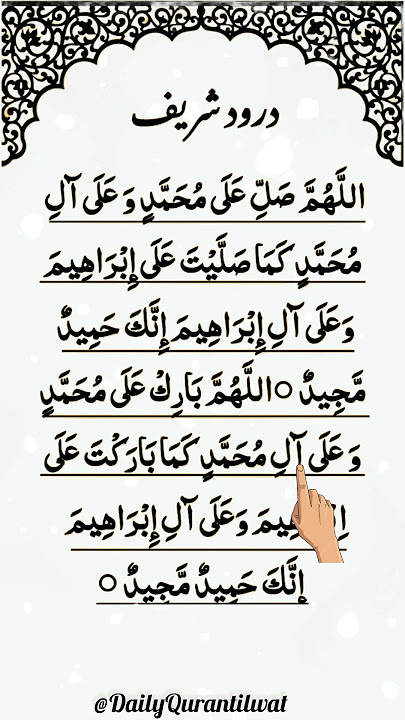 درود شریف
اللَّهُمَّ صَلِّ عَلَى مُحَمَّدٍ وَ عَلَى آلِ
مُحَمَّدٍ كَمَا صَلَّيْتَ عَلَى إِبْرَاهِيمَ
وَعَلَى آلِ إِبْرَاهِيمَ إِنَّكَ حَمِيدٌ
مَّجِيدٌ ○ اللَّهُمَّ بَارِكْ عَلَى مُحَمَّدٍ
وَ عَلَى آلِ مُحَمَّدٍ كَمَا بَارَكْتَ عَلَى
وَعَلَى آلِ إِبْرَاهِيمَ
إِنَّكَ حَمِيدٌ مَّجِيدٌ ○
@DailyQurantilwat